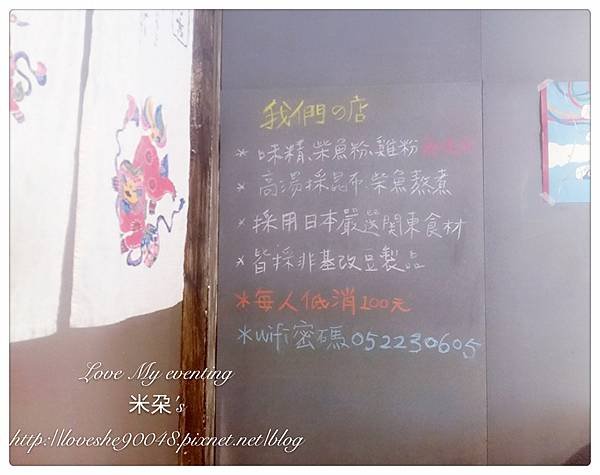 我們の店
* 味精、柴魚粉、雞粉
* 高湯採昆布、柴魚熬煮
* 採用日本嚴選関東食材
* 皆採非基改豆製品
* 每人低消100元
* wifi密碼052230605
Love My eventing
米朶's
http://loveshe90048.pixnet.net/blog